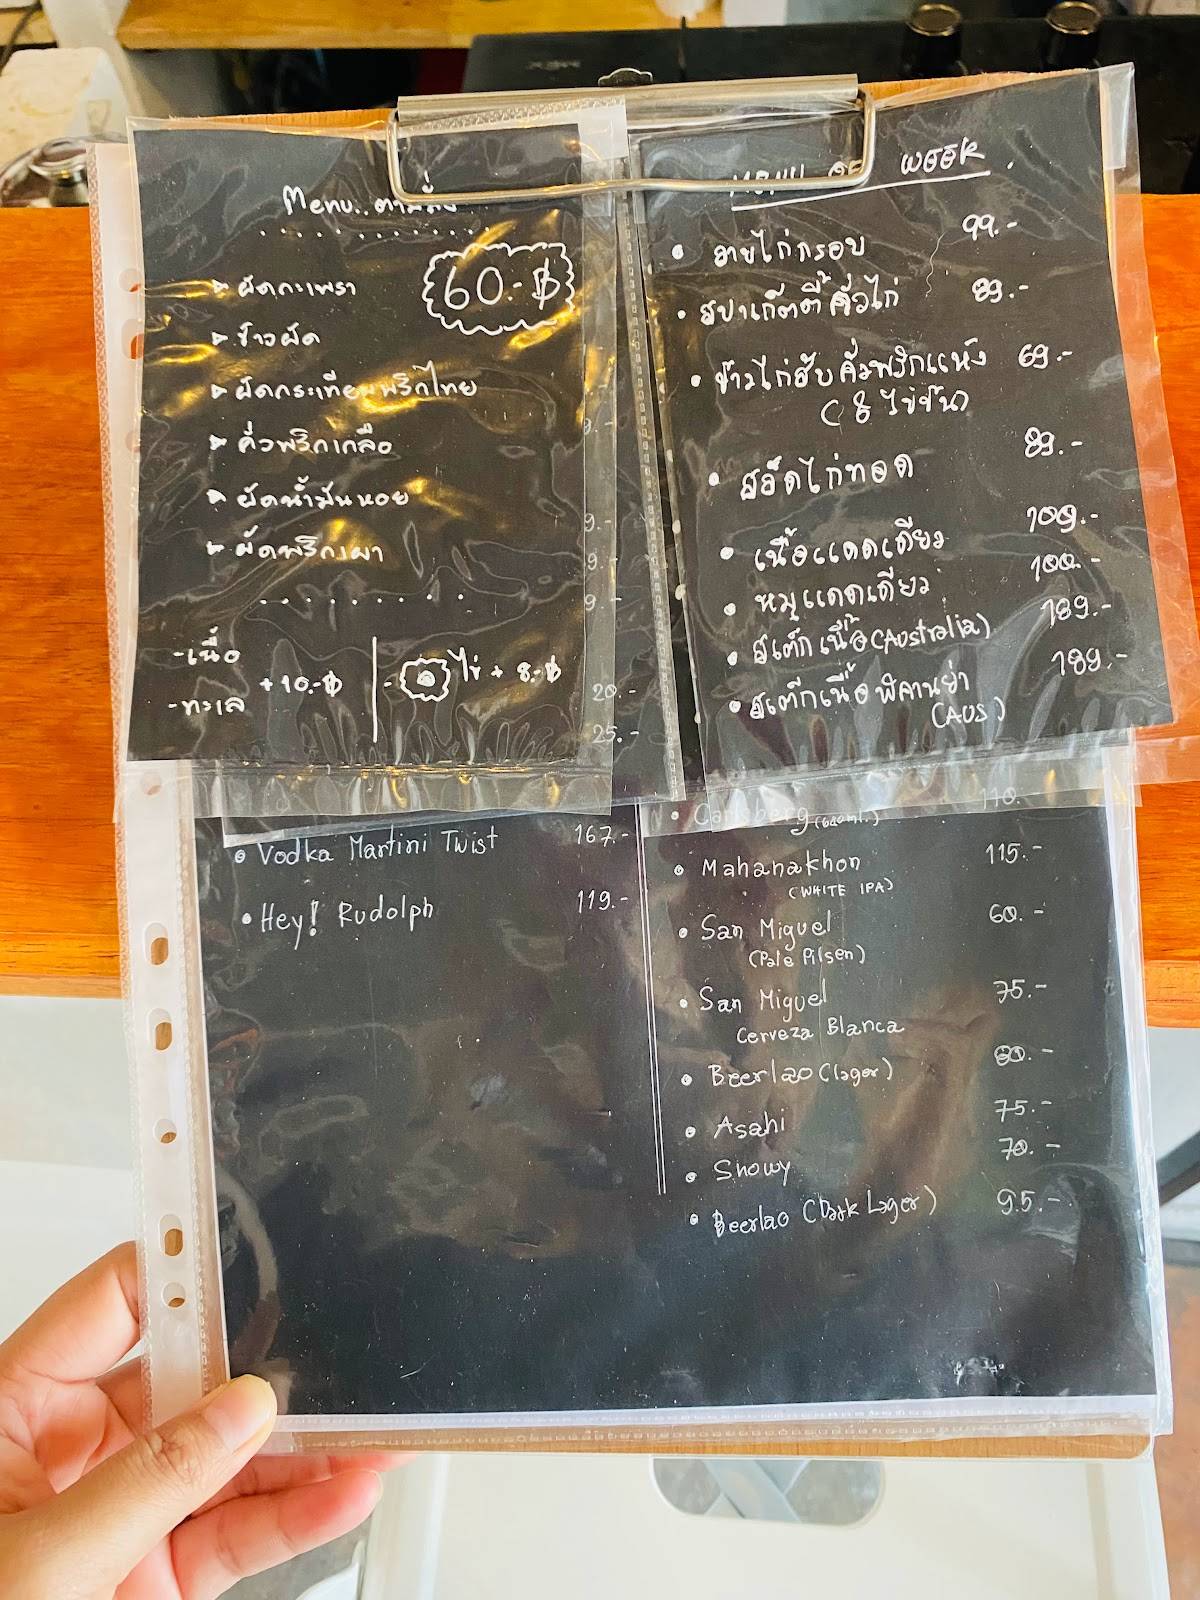 Menu..ตามสั่ง
60.-฿
ผัดกะเพรา
ข้าวผัด
ผัดกระเทียมพริกไทย
คั่วพริกเกลือ
ผัดน้ำมันหอย
ผัดพริกเผา
-เนื้อ
-ทะเล
+10.-฿
- ไข่ + 8.-฿
9.-
9.-
9.-
9.-
20.-
25.-
MENU OF WEEK
ลาบไก่กรอบ 99.-
สปาเก็ตตี้คั่วไก่ 89.-
ข้าวไก่สับคั่วพริกแห้ง 69.-
สลัดไก่ทอด 89.-
เนื้อแดดเดียว 109.-
หมูแดดเดียว 100.-
สเต็กเนื้อ(Australia) 189.-
สเต๊กเนื้อพิคานย่า 199.-
(AUS)
Vodka Martini Twist 167.-
Hey! Rudolph 119.-
Carlsberg (640ml.) 110.
Mahanakhon 115.-
(WHITE IPA)
San Miguel 60.-
(Pale Pilsen)
San Miguel 75.-
Cerveza Blanca
Beerlao (lager) 80.-
Asahi 75.-
Snowy 70.-
Beerlao (Dark Lager) 95.-